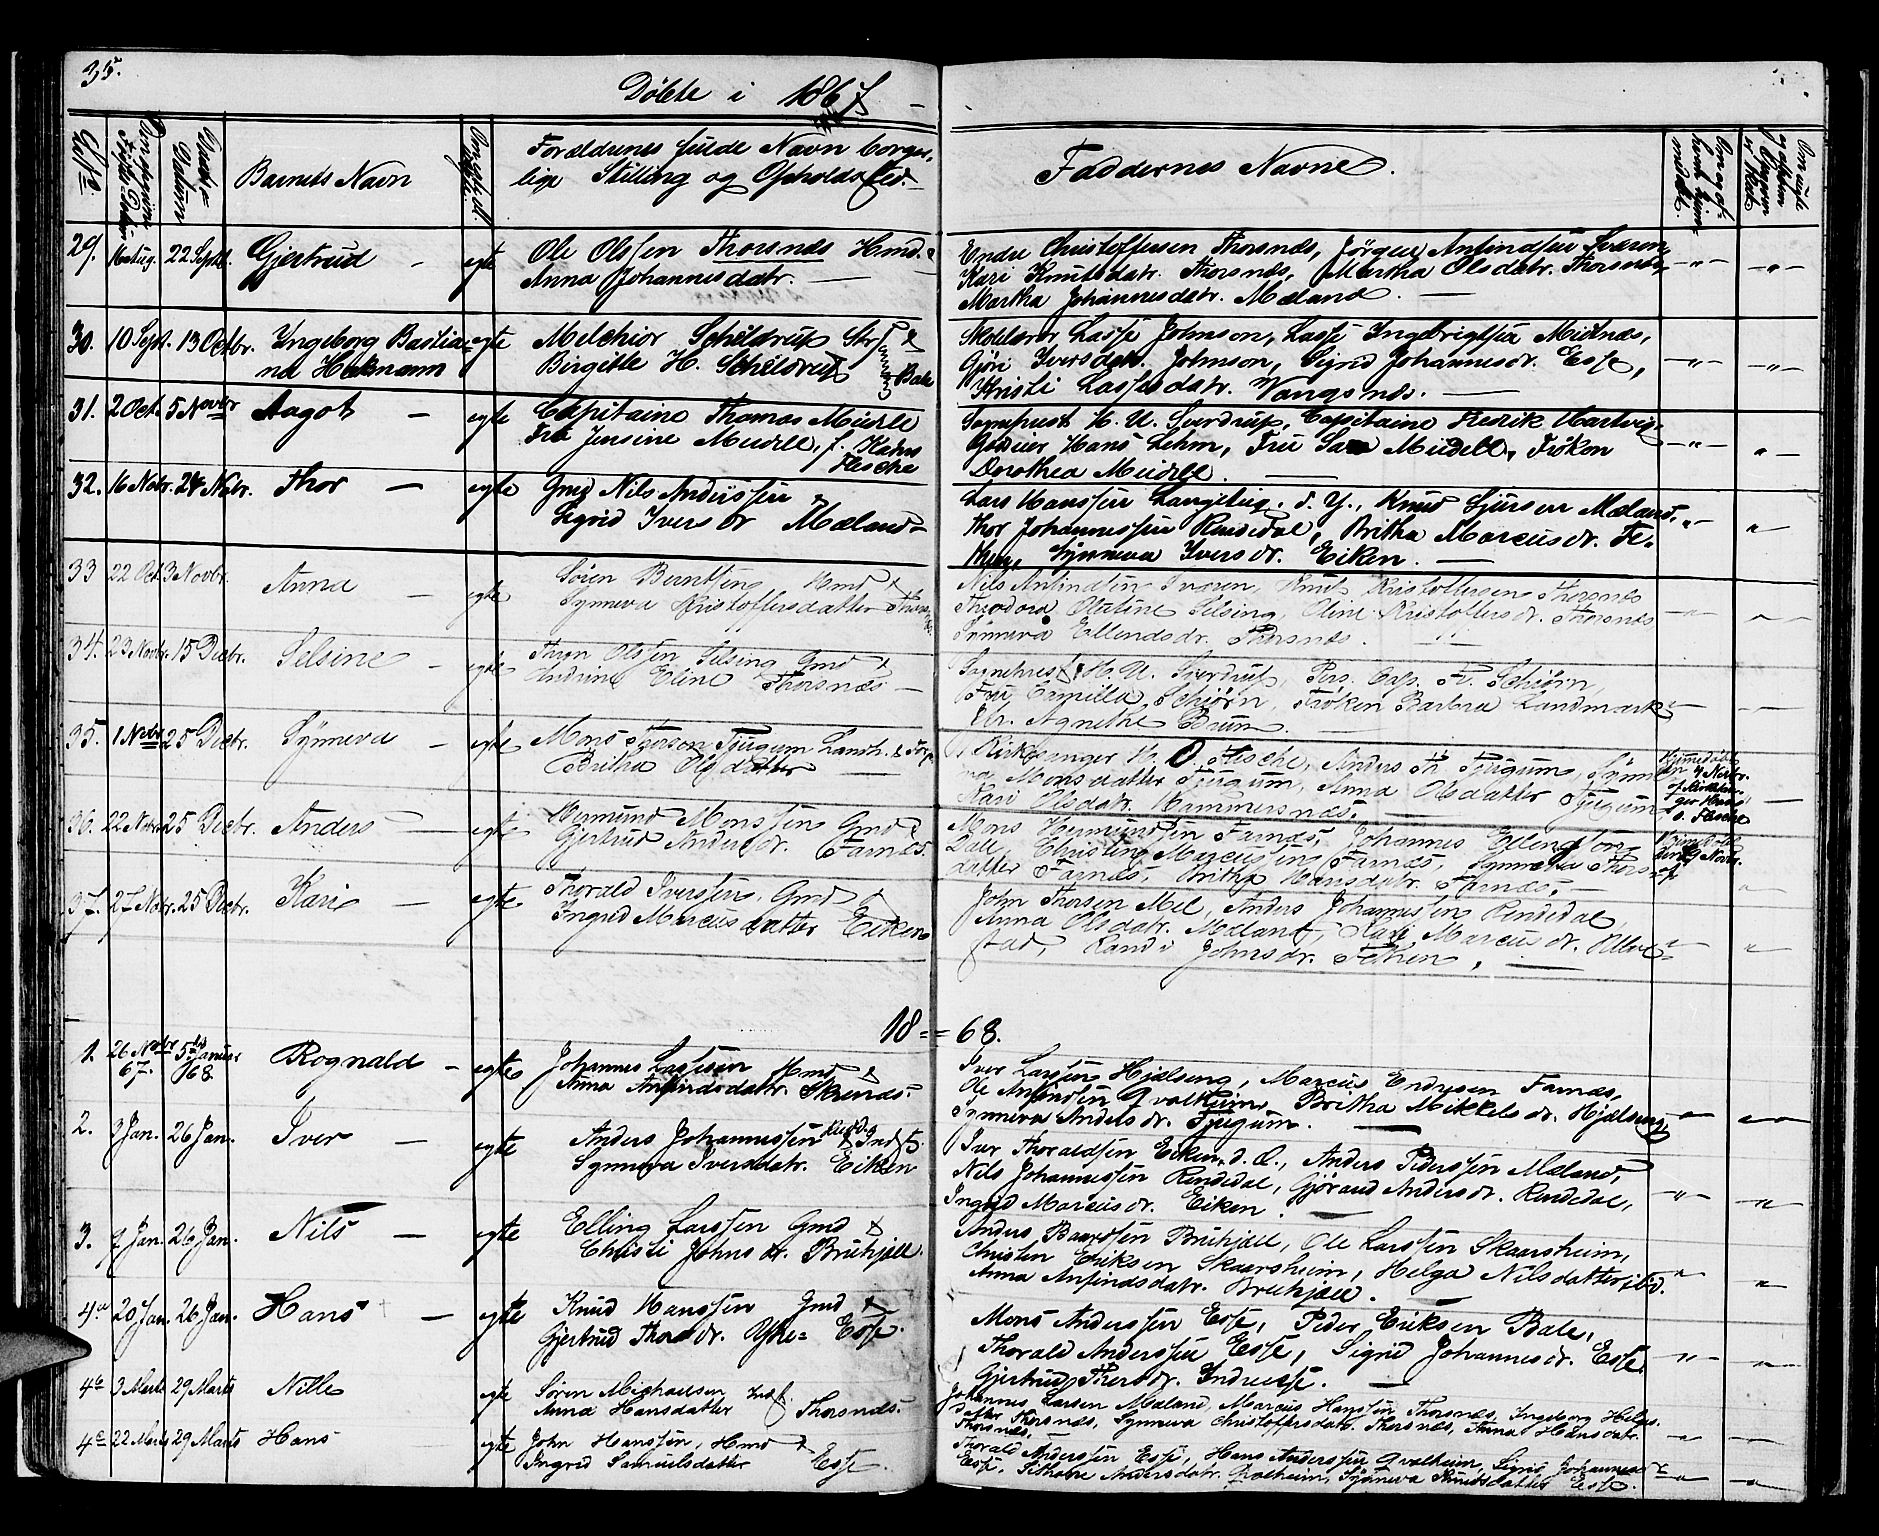 35.
Döbte i 1867
Barnets Navn
Forældrenes fulde Navn borger-
lige Stilling og Opholdssted.
Faddernes Navne.
29. 22 Septr. Gjertrud - egte Ole Olssen Thorsnæs Hmd. &
Anna Johannesdatr. —
Endre Christoffersen Thorsnæs, Jörgen Anfindsen Sværen,
Kari Knutsdatr. Thorsnæs, Martha Olsdatr. Thorsnæs,
Martha Johannesdatr. Mæland. —
30. 10 Sept. 13 Octbr. Ingeborg Bastia-
na egte Melchior Schildrup &
Birgitte H. Schildrup Bale
Lasse Johnson, Lasse Ingebrigtsen Midtnæs,
Gjöri Iversdatr. Johnson, Sigrid Johannesdr. Esse,
Kristi Lassesdatr. Vangsnæs. —
31. 2 Oct. 5 Novbr Aagot — egte Capitaine Thomas Meidell
Fru Jensine Meidell, f. Flesche
Sogneprest H. U. Sverdrup, Capitaine Fredrik Hartvig
Hans Lehm, Fru Meidell, Fröken
Dorothea Meidell. —
32. 16 Novbr. 24 Novbr. Thor — egte Gmd Nils Anderssen &
Sigrid Ivers dr Mæland
Lars Hanssen d. Y., Knud Sjursen Mæland,
Thor Johannessen Rendedal, Britha Marcusdr. Fe-
then, Synneva Iversdr. Eiken. —
33 22 Oct. 3 Novbr. Anna — egte Sören Berntsen, Hmd &
Synneva Kristoffersdatter Thorsnæs
Nils Anfindsen Sværen, Knut Kristoffersen Thorsnæs
Theodora Olatine Selsing, Oline Kristoffersdr. Thorsnæs
Synneva Ellendsdr. Thorsnæs.
34. 23 Novbr. 15 Decbr. Selsine — egte Olssen Selsing Gmd &
Andrine Eline Thorsnæs —
Sogneprest H. U. Sverdrup, Pers. Cap. Schiörn,
Fru Camilla Schiörn, Fröken Barbra Landmark
Elr. Agnethe Bruun. —
35. 1 Novbr 25 Decbr. Synneva — egte Mons Tjugum Landh. &
Britha Olsdatter —
Kirkesanger H. O. Flesche, Anders Tjugum, Synne-
va Monsdatter Tjugum, Anna Olsdatter Tjugum
Kari Olsdatr. Hammersnæs. —
Hjemedöbt
4 Novbr.
Flesche
36. 22 Novbr 25 Decbr. Anders — egte Hermund Monssen Gmd &
Gjertrud Andersdr. Farnæs.
Mons Hermundssen Farnæs, Johannes
Dale, Christen Marcussen Farnæs, Synneva Thors-
datter Farnæs, Britha Hansdatr. Farnæs. —
37. 27 Novbr. 25 Decbr. Kari — egte Thorald Iverssen, Gmd &
Ingrid Marcusdatter Eiken
John Thorsen Mel, Anders Johannessen Rendedal
Anna Olsdatr. Mæland, Kari Marcusdr. Ulve-
stad, Randi Johnsdr. Fethen. —
18 = 68.
1. 26 Novbr 67. 5 Januar 68 Rognald — egte Johannes Lassesen Hmd &
Anna Anfindsdatr. Skrenæs.
Iver Larssen Hjelseng, Marcus Endresen Farnæs,
Ole Anfindsen Qvalheim, Britha Mikkelsdr. Hjelseng,
Synneva Andersdr. Tjugum. —
2. 26 Jan. Iver — egte Anders Johannessen &
Synneva Iversdatr. Eiken
Iver Thoraldsen Eiken, d. Æ., Anders Pederssen Mæland,
Nils Johannessen Rendedal, Gjörand Andersdr. Rendedal,
Ingrid Marcusdr. Eiken. —
3. 7 Jan. 26 Jan. Nils — egte Elling Larssen Gmd &
Christi Johnsdr. Bruhjell.
Anders Baardsen Bruhjell, Ole Larssen Skaarsheim,
Christen Eriksen Skaarsheim, Helga Nilsdatter ibd.
Anna Anfindsdatr. Bruhjell. —
4a 20 Jan. 26 Jan. Hans — egte Knud Hanssen Gmd &
Gjertrud Thorsdr. Ytre= Esse.
Mons Anderssen Esse, Peder Eriksen Bale,
Thorald Anderssen Esse, Sigrid Johannesdr. Esse.
Gjertrud Thorsdr. Indreesse. —
4b 3 Marts 29 Marts Nille egte Sören Michaelsen
Anna Hansdatter Thorsnæs.
Johannes Larsen Mæland, Marcus Hanssen Thorsnæs, Ingeborg Helges-
datter Thorsnæs, Synneva Christoffersdatr. Thorsnæs, Anna Hansdatr.
Thorsnæs.
4c 22 Marts 29 Marts Hans egte John Hanssen, Hmd &
Ingrid Samuelsdatter Esse.
Thorald Anderssen Esse, Hans Anderssen Qvalheim, Sigrid Johannesdr
Esse, Andersdatr. Qvalheim, Synneva Knudsdatter Esse.